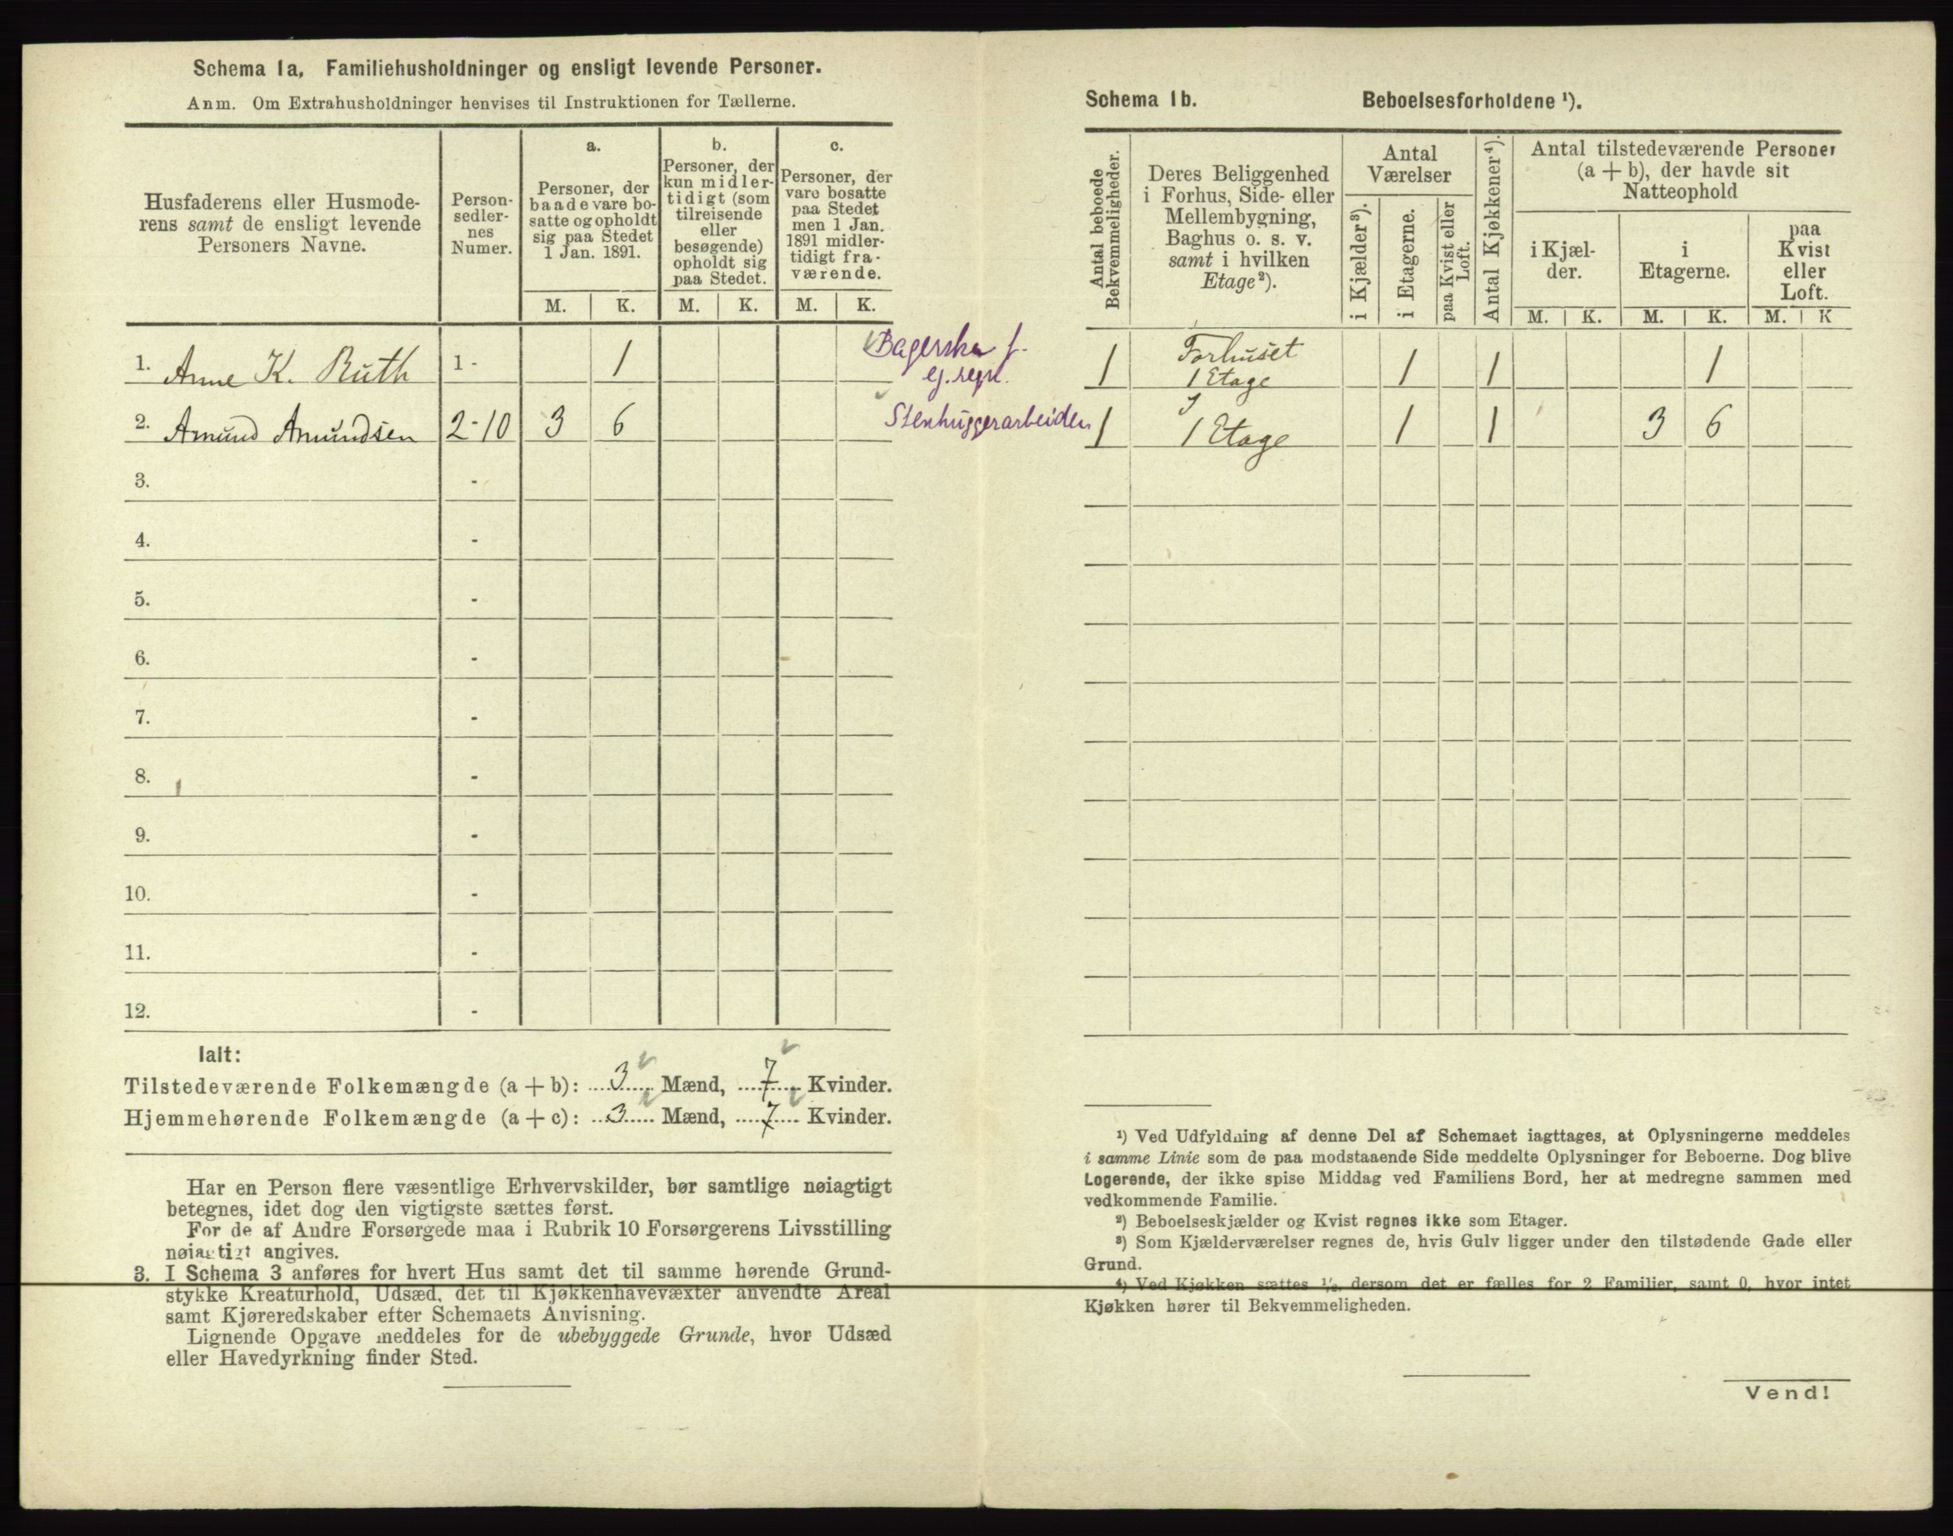 Schema 1a, Familiehusholdninger og ensligt levende Personer.
Anm. Om Extrahusholdninger henvises til Instruktionen for Tællerne.
Husfaderens eller Husmode-
rens samt de ensligt levende
Personers Navne.
Person-
sedler-
nes
Numer.
a.
Personer, der
baade vare bo-
satte og opholdt
sig paa Stedet
1 Jan. 1891.
b.
Personer, der
kun midler-
tidigt (som
tilreisende
eller
besøgende)
opholdt sig
paa Stedet.
c.
Personer, der
vare bosatte
paa Stedet
men 1 Jan.
1891 midler-
tidigt fra-
værende.
M. K. M. K. M. K.
1. Anne K. Ruth 1 - 1 Bagerska f.
ej. regn.
2. Amund Amundsen 2-10 3 6 Stenhuggerarbeider
3. -
4. -
5. -
6. -
7. -
8. -
9. -
10. -
11. -
12. -
Ialt:
Tilstedeværende Folkemængde (a + b): 3 Mænd, 7 Kvinder.
Hjemmehørende Folkemængde (a + c): 3 Mænd, 7 Kvinder.
Har en Person flere væsentlige Erhvervskilder, bør samtlige nøiagtigt
betegnes, idet dog den vigtigste sættes først.
For de af Andre Forsørgede maa i Rubrik 10 Forsørgerens Livsstilling
nøiagtigt angives.
3. I Schema 3 anføres for hvert Hus samt det til samme hørende Grund-
stykke Kreaturhold, Udsæd, det til Kjøkkenhavevæxter anvendte Areal
samt Kjøreredskaber efter Schemaets Anvisning.
Lignende Opgave meddeles for de ubebyggede Grunde, hvor Udsæd
eller Havedyrkning finder Sted.
Schema 1b. Beboelsesforholdene ¹).
Antal beboede
Bekvemmeligheder.
Deres Beliggenhed
i Forhus, Side- eller
Mellembygning,
Baghus o. s. v.
samt i hvilken
Etage²).
Antal
Værelser
i Kjælder³).
i Etagerne.
paa Kvist eller
Loft.
Antal Kjøkkener⁴).
Antal tilstedeværende Personer
(a + b), der havde sit
Natteophold
i Kjæl-
der.
i
Etagerne.
paa
Kvist
eller
Loft.
M. K. M. K. M. K
1 Forhuset
1 Etage 1 1 1
1 1 Etage 1 1 3 6
¹) Ved Udfyldning af denne Del af Schemaet iagttages, at Oplysningerne meddeles
i samme Linie som de paa modstaaende Side meddelte Oplysninger for Beboerne. Dog blive
Logerende, der ikke spise Middag ved Familiens Bord, her at medregne sammen med
vedkommende Familie.
²) Beboelseskjælder og Kvist regnes ikke som Etager.
³) Som Kjælderværelser regnes de, hvis Gulv ligger under den tilstødende Gade eller
Grund.
⁴) Ved Kjøkken sættes ½, dersom det er fælles for 2 Familier, samt 0, hvor intet
Kjøkken hører til Bekvemmeligheden.
Vend!